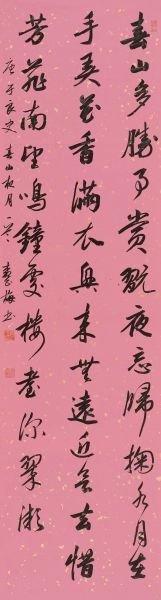 春山多勝事賞翫夜忘歸掬水月在
手弄花香滿衣興來無遠近欲去惜
芳菲南望鳴鐘處樓臺深翠微
唐于良史春山夜月一首